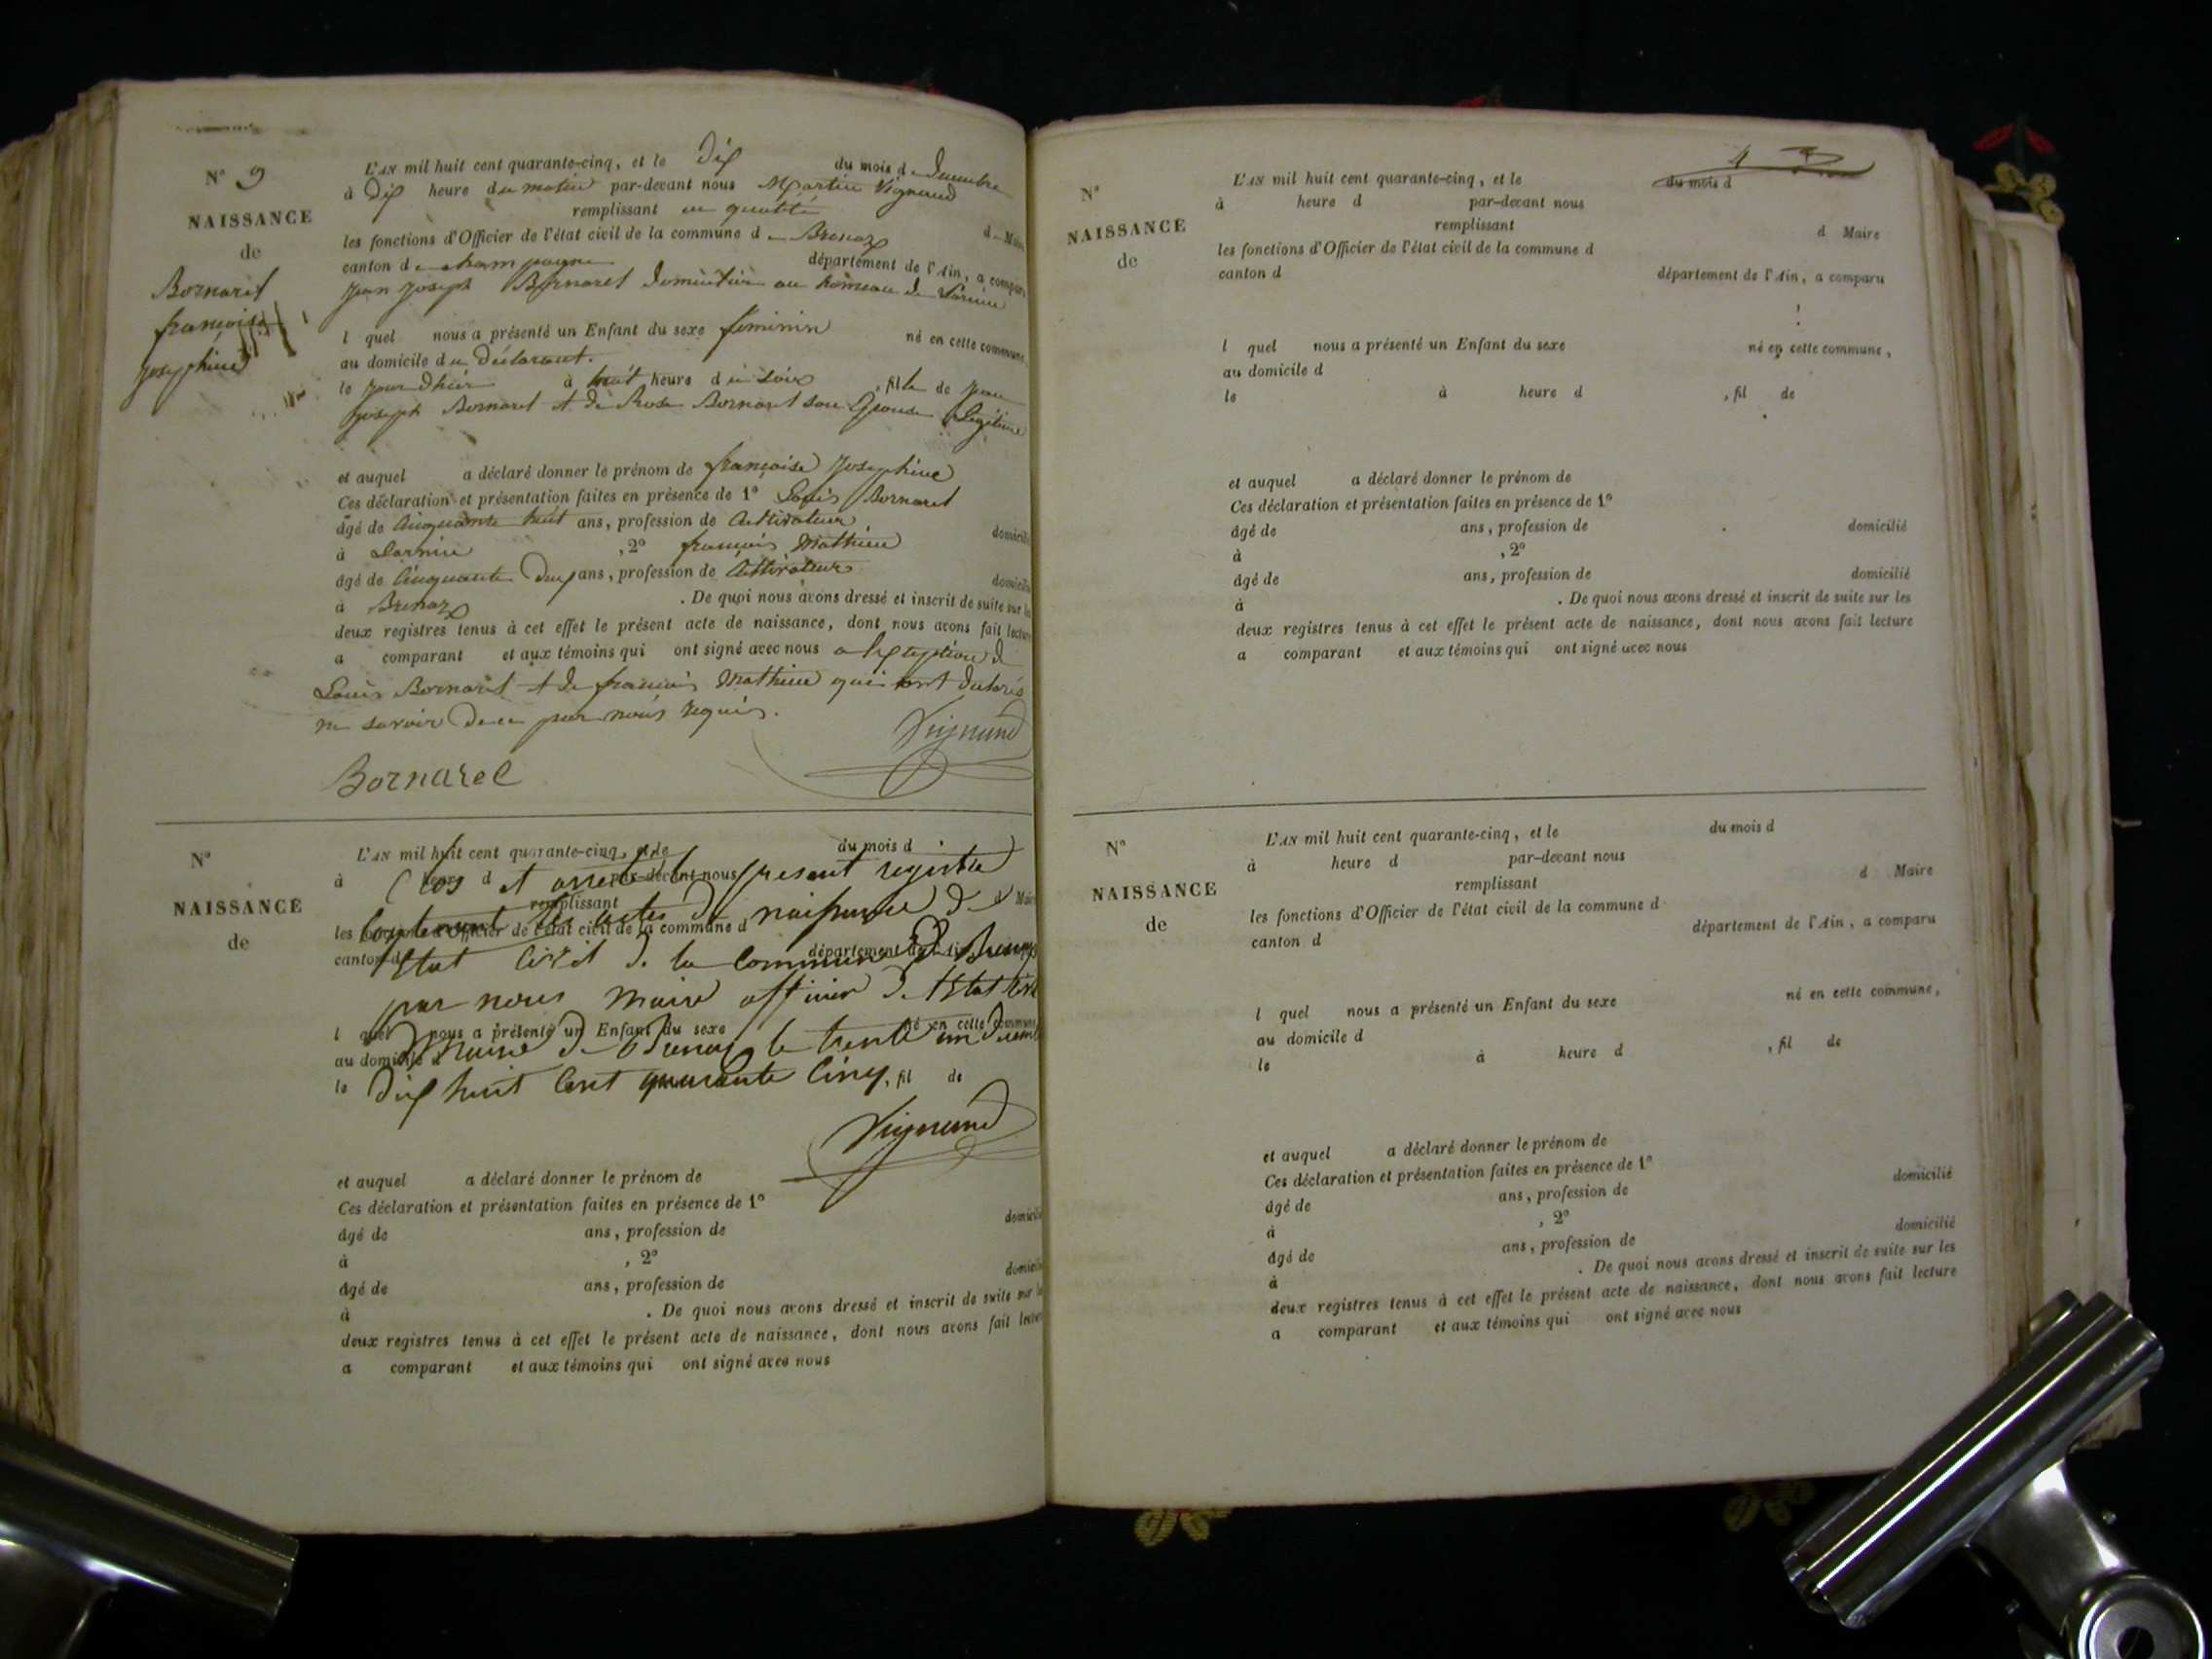 N° 9
NAISSANCE
de
Bornarel
françoise
josephine
L'AN mil huit cent quarante-cinq, et le Dix du mois de Decembre
à Dix heure du matin par-devant nous Martin Vignand
remplissant en qualité d Maire
les fonctions d'Officier de l'état civil de la commune d Brenaz
canton de champagne département de l'Ain, a comparu
jean joseph Bornarel domicilié au hameau de
l quel nous a présenté un Enfant du sexe féminin né en cette commune,
au domicile du Déclarant.
le jour d'hier à huit heure du soir, fille de jean
joseph Bornarel et de Rose Bornarel son Epouse Légitime
et auquel a déclaré donner le prénom de françoise josephine
Ces déclaration et présentation faites en présence de 1° Louis Bornarel
âgé de cinquante huit ans, profession de Cultivateur domicilié
à , 2° françois Mathieu
âgé de Cinquante Deux ans, profession de Cultivateur domicilié
à Brenaz . De quoi nous avons dressé et inscrit de suite sur les
deux registres tenus à cet effet le présent acte de naissance, dont nous avons fait lecture
a comparant et aux témoins qui ont signé avec nous a l'Exception de
Louis Bornarel et de françois Mathieu qui ont declarés
ne savoir de ce par nous requis.
Vignand
Bornarel
N°
NAISSANCE
de
L'AN mil huit cent quarante-cinq, et le du mois d
à heure d par-devant nous
Clos et arreté le present registre
remplissant d Maire
Contenant les actes de naissance de
les fonctions d'Officier de l'état civil de la commune d
l'Etat Civil de la Commune de Brenaz
canton d département de l'Ain
par nous Maire officier de l'Etat Civil
l quel nous a présenté un Enfant du sexe né en cette commune
au domicile d
de Brenaz le trente un Decembre
le , fil de
Dix huit Cent quarante Cinq
Vignand
et auquel a déclaré donner le prénom de
Ces déclaration et présentation faites en présence de 1°
âgé de ans, profession de domicilié
à , 2°
âgé de ans, profession de domicilié
à . De quoi nous avons dressé et inscrit de suite sur les
deux registres tenus à cet effet le présent acte de naissance, dont nous avons fait lecture
a comparant et aux témoins qui ont signé avec nous
N°
NAISSANCE
de
L'AN mil huit cent quarante-cinq, et le du mois d
à heure d par-devant nous
remplissant d Maire
les fonctions d'Officier de l'état civil de la commune d
canton d département de l'Ain, a comparu
l quel nous a présenté un Enfant du sexe né en cette commune,
au domicile d
le à heure d , fil de
et auquel a déclaré donner le prénom de
Ces déclaration et présentation faites en présence de 1°
âgé de ans, profession de domicilié
à , 2°
âgé de ans, profession de domicilié
à . De quoi nous avons dressé et inscrit de suite sur les
deux registres tenus à cet effet le présent acte de naissance, dont nous avons fait lecture
a comparant et aux témoins qui ont signé avec nous
N°
NAISSANCE
de
L'AN mil huit cent quarante-cinq, et le du mois d
à heure d par-devant nous
remplissant d Maire
les fonctions d'Officier de l'état civil de la commune d
canton d département de l'Ain, a comparu
l quel nous a présenté un Enfant du sexe né en cette commune,
au domicile d
le à heure d , fil de
et auquel a déclaré donner le prénom de
Ces déclaration et présentation faites en présence de 1°
âgé de ans, profession de domicilié
à , 2°
âgé de ans, profession de domicilié
à . De quoi nous avons dressé et inscrit de suite sur les
deux registres tenus à cet effet le présent acte de naissance, dont nous avons fait lecture
a comparant et aux témoins qui ont signé avec nous